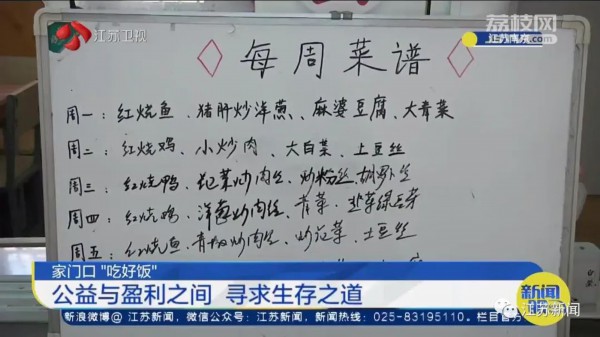 江苏卫视
荔枝网
江苏南京
每周菜谱
周一：红烧鱼、猪肝炒洋葱、麻婆豆腐、大青菜
周二：红烧鸡、小炒肉、大白菜、土豆丝
周三：红烧鸭、花菜炒肉丝、炒粉丝、胡萝卜丝
周四：红烧鸡、洋葱炒肉丝、青菜、韭菜绿豆芽
周五：红烧鱼、青椒炒肉丝、炒花菜、土豆丝
家门口 "吃好饭"
公益与盈利之间 寻求生存之道
新闻
新浪微博@ 江苏新闻，微信公众号：江苏新闻，新闻热线：025-83195110，栏目官方
江苏新闻